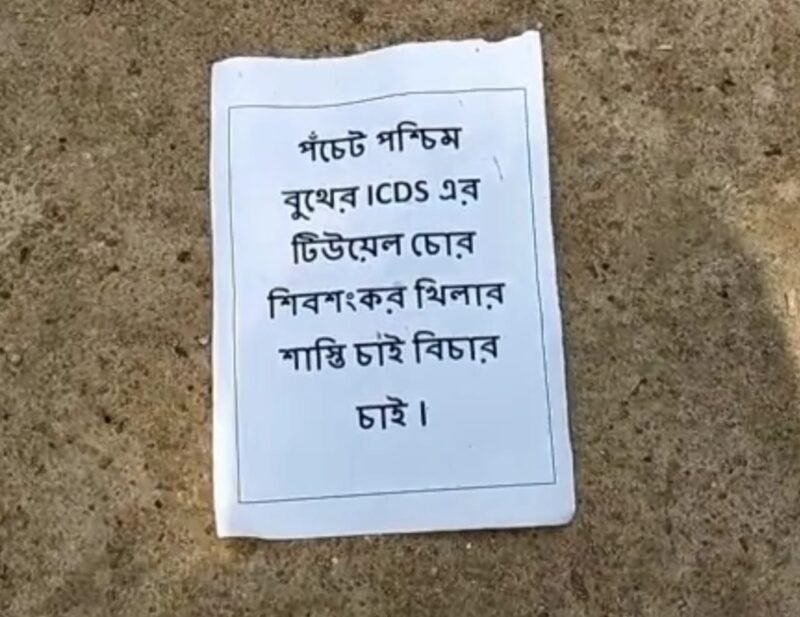 পঁচেট পশ্চিম
বুথের ICDS এর
টিউয়েল চোর
শিবশংকর খিলার
শাস্তি চাই বিচার
চাই ।